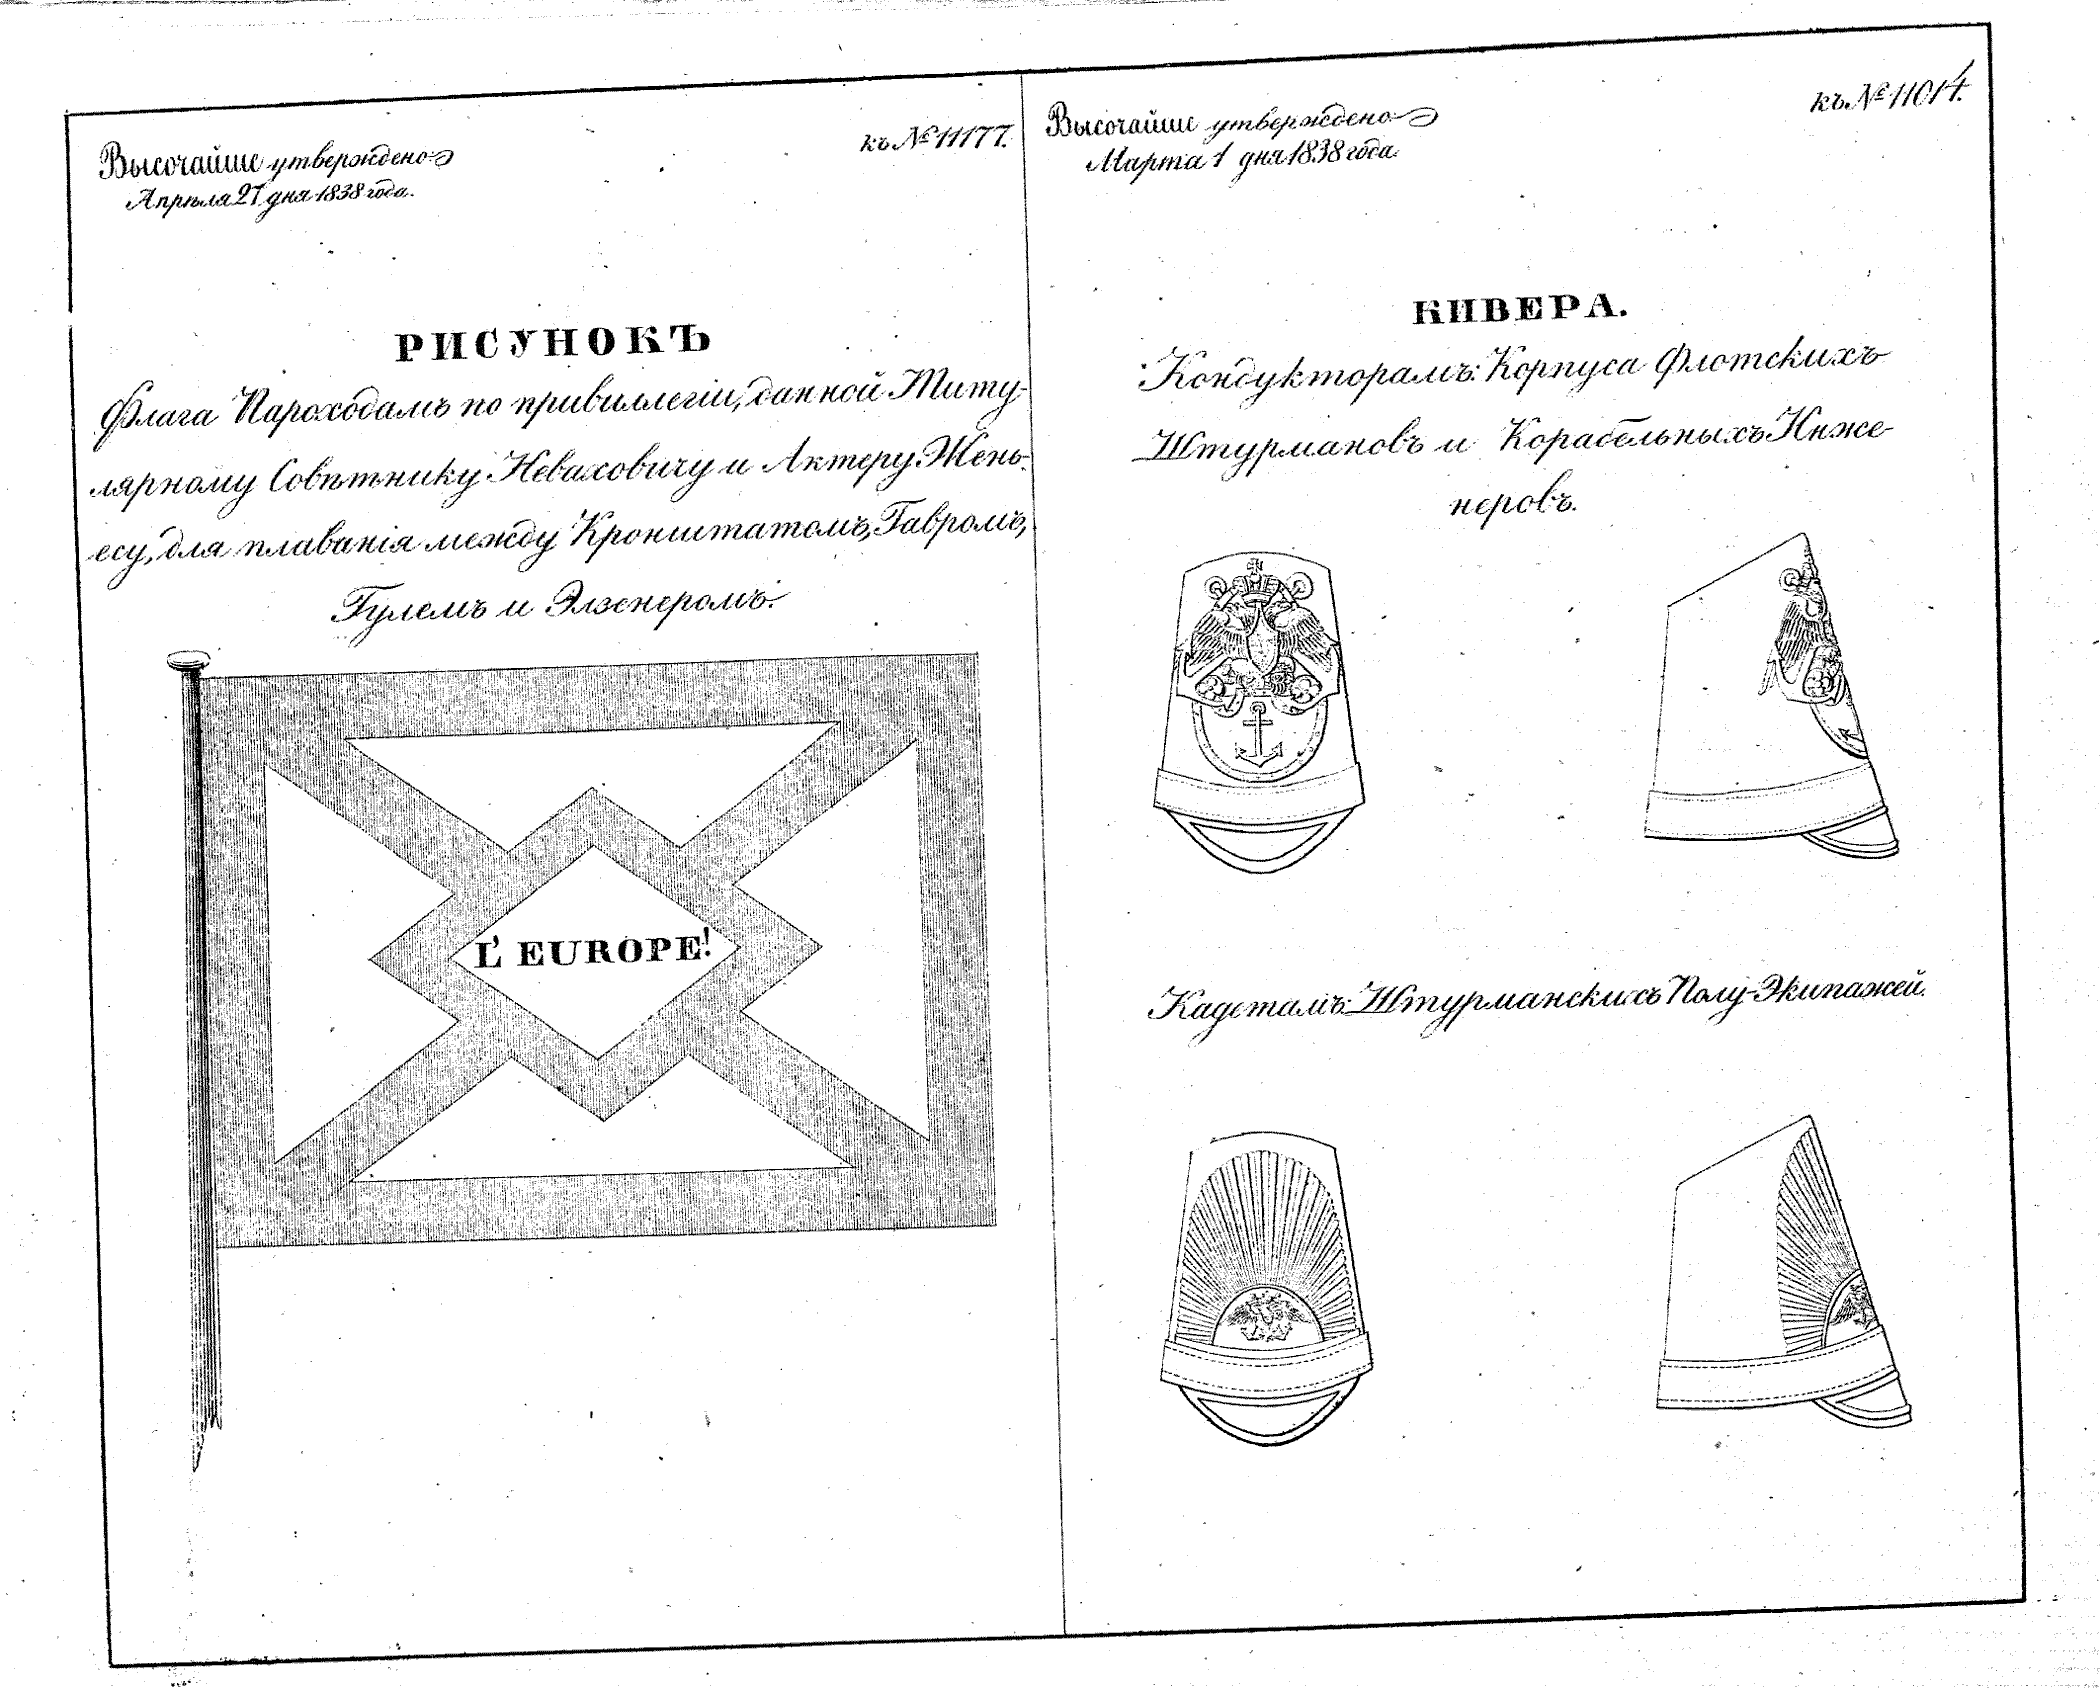 къ № 11177.
Высочайше утверждено
Апрѣля 27 дня 1838 года.
РИСУНОКЪ
Флага Пароходамъ по привиллегіи, данной Титу-
лярному Совѣтнику Неваховичу и Актеру Жень-
есу, для плаванія между Кронштатомъ, Гавромъ,
Гулемъ и Элзенеромъ.
L'EUROPE!
къ № 11014.
Высочайше утверждено
Марта 1 дня 1838 года.
КИВЕРА.
Кондукторамъ: Корпуса Флотскихъ
Штурмановъ и Корабельныхъ Инже-
неровъ.
Кадетамъ: Штурманскихъ Полу-Экипажей.